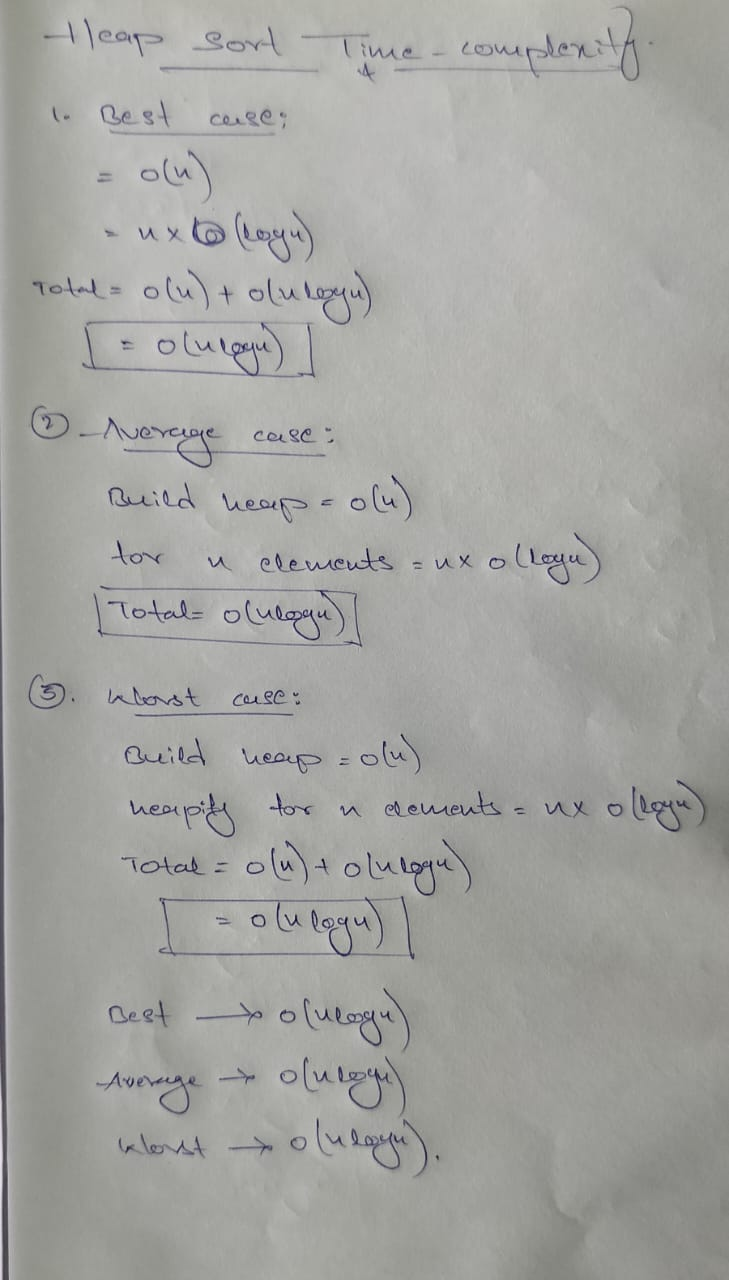 Heap Sort Time-complexity.
1. Best case:
= O(n)
= n x O(logn)
Total = O(n) + O(nlogn)
= O(nlogn)
② Average case:
Build heap = O(n)
for n elements = n x O(logn)
Total = O(nlogn)
③. Worst case:
Build heap = O(n)
heapify for n elements = n x O(logn)
Total = O(n) + O(nlogn)
= O(nlogn)
Best → O(nlogn)
Average → O(nlogn)
Worst → O(nlogn).